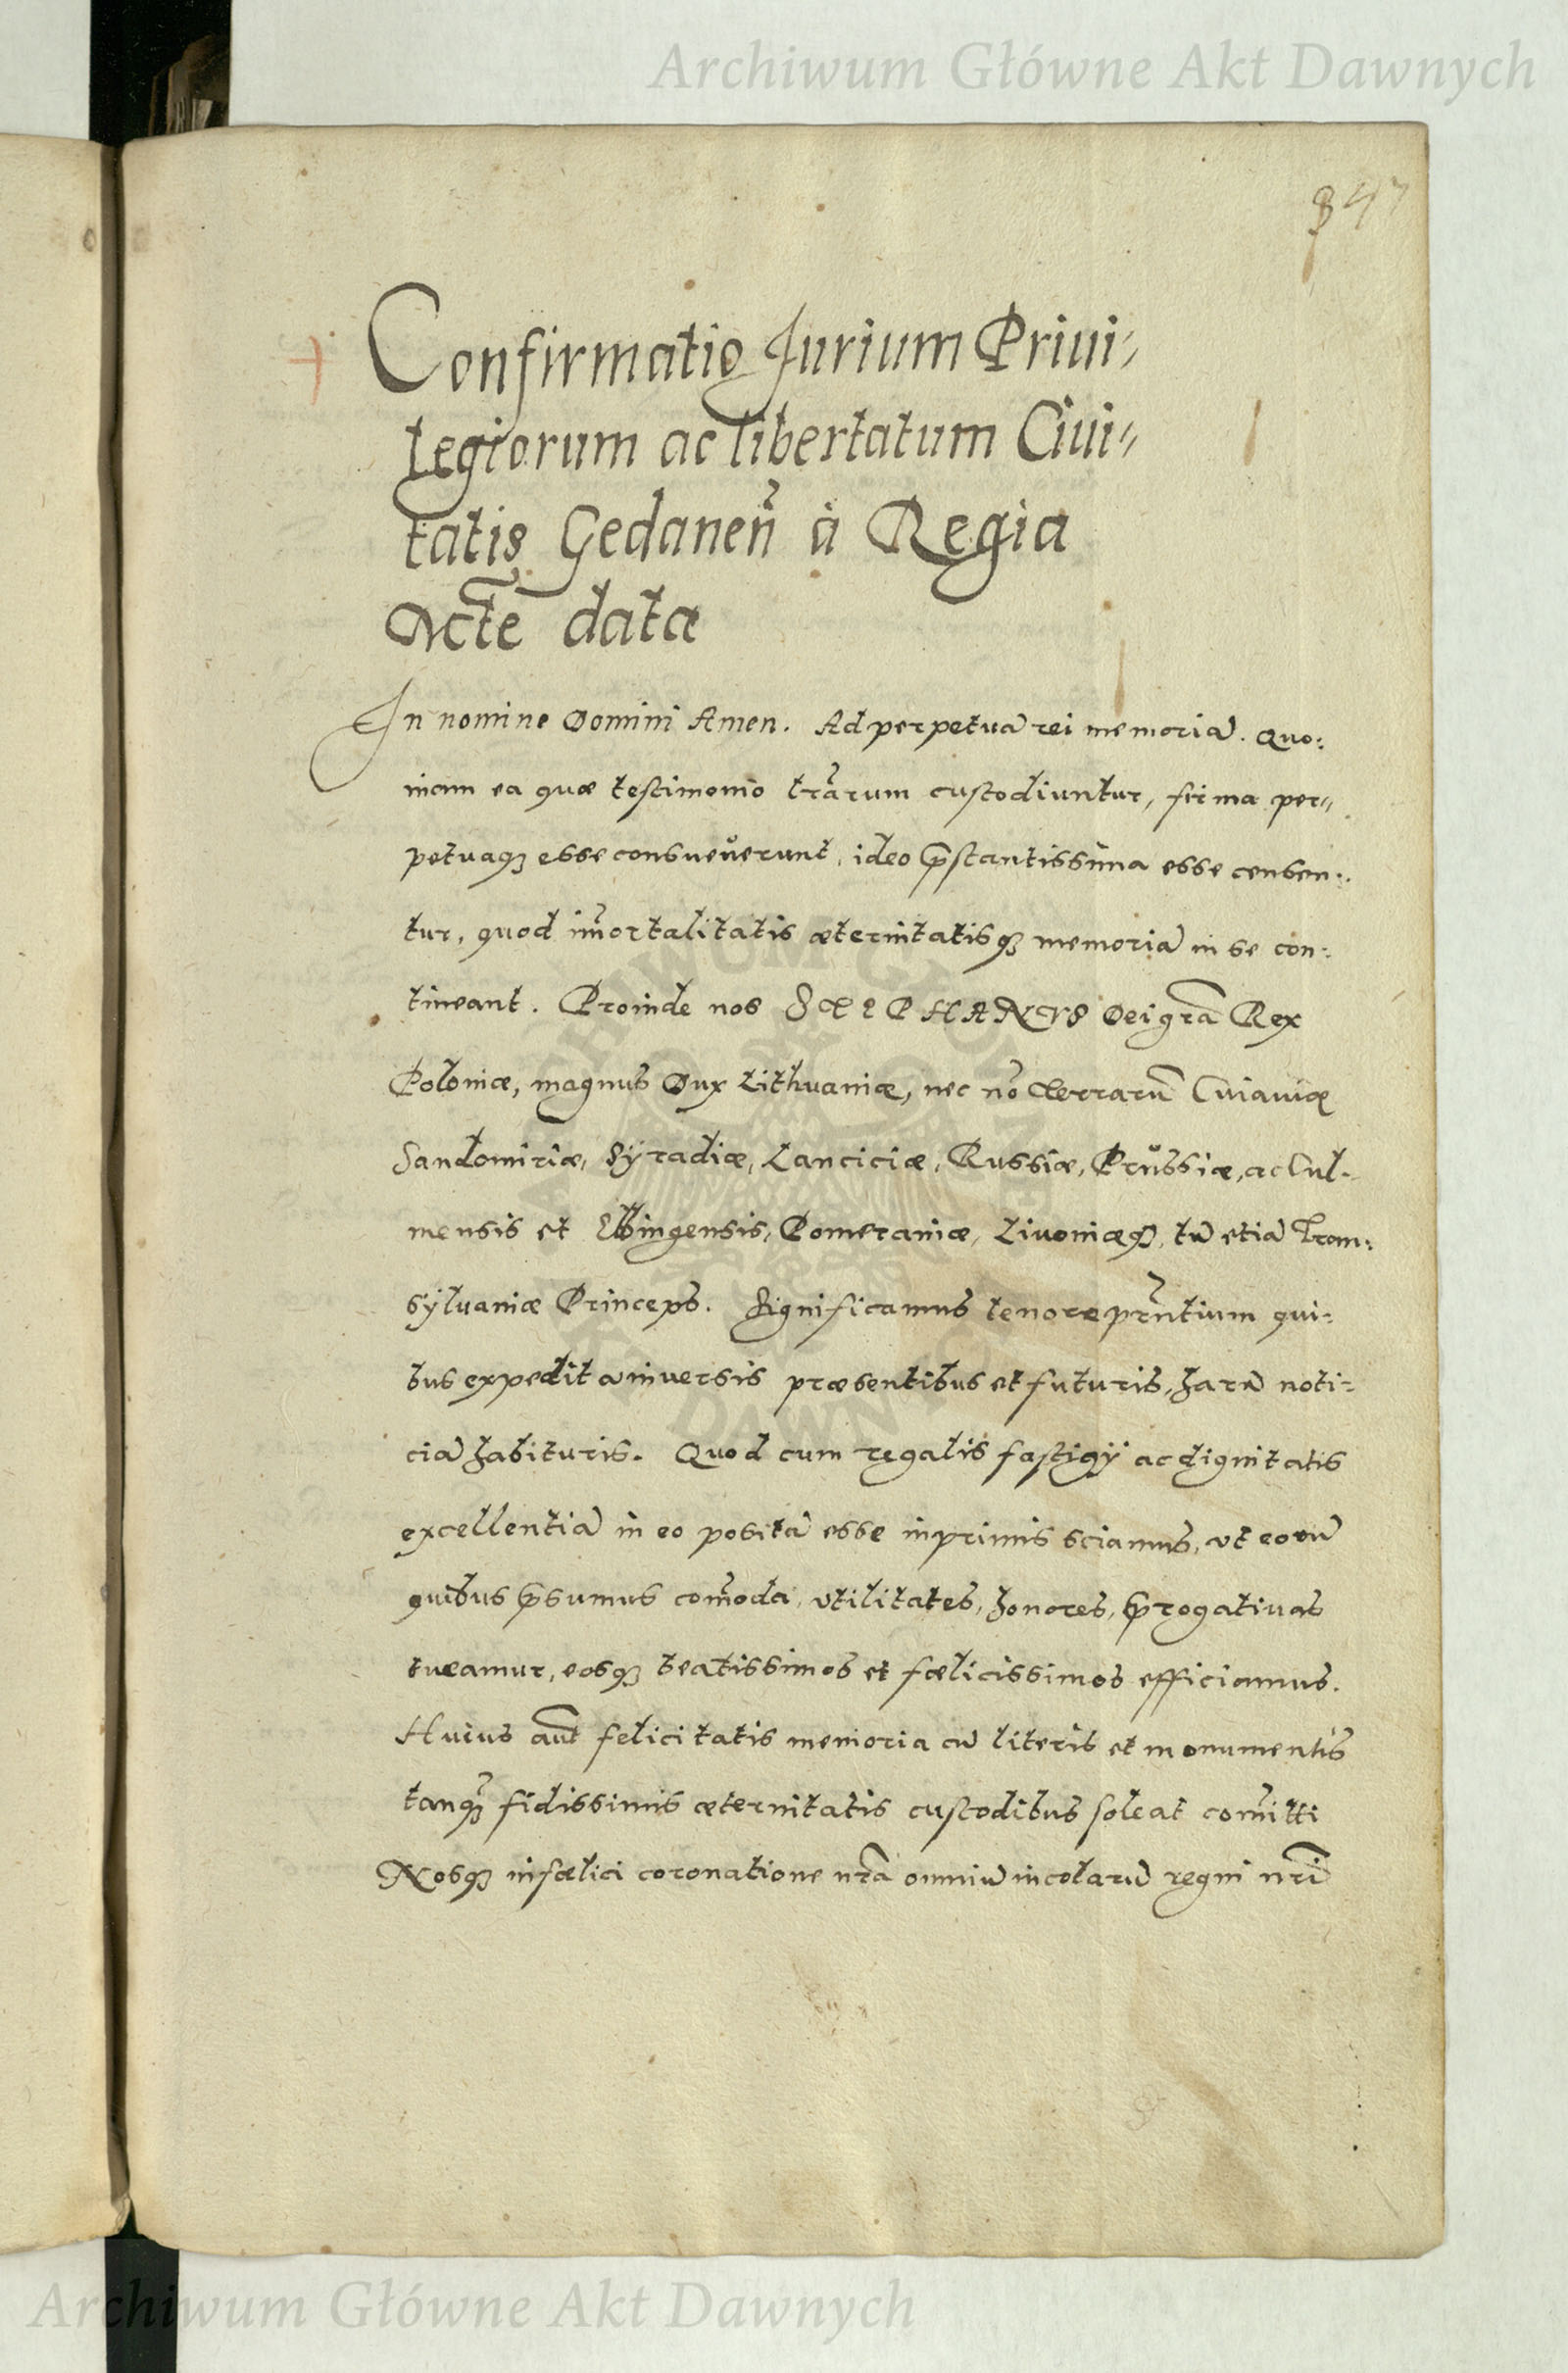 Archiwum Główne Akt Dawnych
Confirmatio Jurium Priui〃
legiorum ac libertatum Ciui〃
tatis Gedanen̄ à Regia
Mtte data
In nomine Domini Amen. Ad perpetuā rei memoriā. Quo:
niam ea quæ testimonio lrārum custodiuntur, firma per〃
petuaqꝫ esse consueuerunt, ideo p̄stantissima esse censen:
tur, quod im̄ortalitatis æternitatisqꝫ memoriā in se con:
tineant. Proinde nos STEPHANVS Dei grā Rex
Poloniæ, magnus Dux Lithuaniæ, nec nō Terrarū Cuiauiæ
Sandomiriæ, Syradiæ, Lanciciæ, Russiæ, Prussiæ, ac Cul-
mensis et Elbingensis, Pomeraniæ, Liuoniæqꝫ, tū etiā Tran:
syluaniæ Princeps. Significamus tenore prn̄tium qui:
bus expedit vniuersis præsentibus et futuris, harū noti=
ciā habituris. Quod cum regalis fastigij ac dignitatis
excellentiā in eo positā esse inprimis sciamus, vt eorū
quibus p̄sumus com̄oda, vtilitates, honores, p̄rogatiuas
tueamur, eosqꝫ beatissimos et fœlicissimos efficiamus.
Huius aūt felicitatis memoria cū literis et monumentis
tanqꝫ fidissimis æternitatis custodibus soleat com̄itti
Nosqꝫ in fœlici coronatione nrā omniū incolarū regni nrī
Archiwum Główne Akt Dawnych